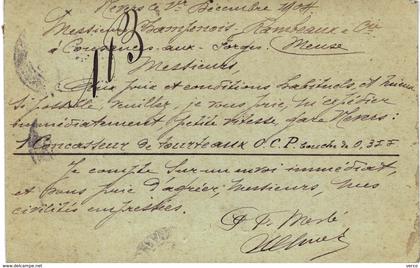 Nevers le 1er Décembre 1904
Messieurs Champenois-Rambeaux & Cie
à Cousances-aux-Forges Meuse
113
Messieurs
Aux prix et conditions habituels, et mieux
si possible, veuillez, je vous prie, m'expédier
immédiatement petite vitesse gare Nevers:
1 Concasseur de tourteaux O.C.P. bouche de 0,37
Je compte sur un envoi immédiat,
et vous prie d'agréer, Messieurs, mes
civilités empressées.